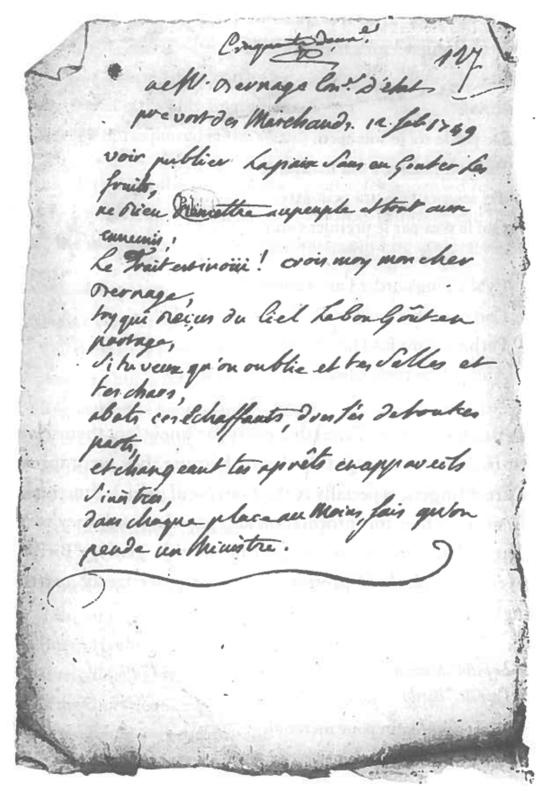 Cinquante deux.e
127
a M.r Bernage Con.er d'état
prevost des Marchands. 12 feb 1749
voir publier La paix Sans en Gouter Les
fruits,
ne rien au peuple et tout aux
ennemis;
Le Trait est inoüi! crois moy mon cher
Bernage,
toy qui reçus du Ciel Le bon Goût en
partage,
Si tu veux qu'on oublie et tes Salles et
tes chars,
abats ces Echaffauts, dressés de toutes
parts,
et changeant tes aprêts en appareils
Sinistres,
dans chaque place au Moins fais qu'on
pende un Ministre.